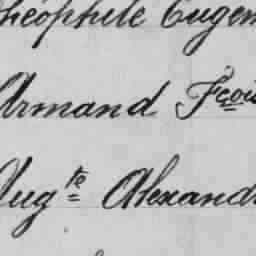 Théophile Eugen
Armand Fçois
Augte Alexandr